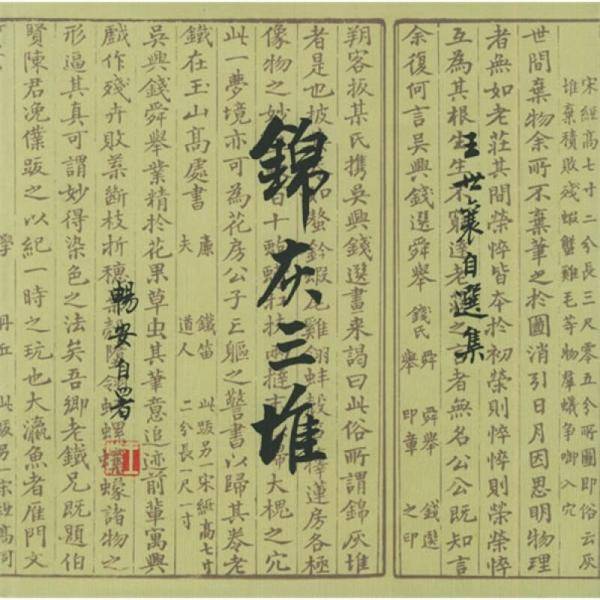 錦灰三堆
王世襄自選集
暢安自署
宋經高七寸二分長三尺零五分所圖即俗云灰
堆棄積敗殘蝦蟹雞毛等物羣蟻爭啣入穴
世間棄物余所不棄筆之於圖消引日月因思明物理
者無如老莊其間榮悴皆本於初榮則悴悴則榮榮悴
互為其根生生不窮達老之言者無名公公既知言
余復何言吳興錢選舜舉 錢氏 舜舉 舜舉印章 錢選之印
朔客扳某氏携吳興錢選畫來謁曰此俗所謂錦灰堆
者是也披如螯鈐蝦尾雞翎蚌殼蓮房各極
像物之妙十扶撻大槐之穴
此一夢境亦可為花房公子三軀之警書以歸其卷老
鐵在玉山高處書 廉夫 鐵笛道人 此跋另一宋紙高七寸二分長一尺一寸
吳興錢舜舉業精於花果草虫其筆意追迹前輩寓興
戲作殘卉敗荄斷枝折穗螺蠓諸物之
形逼其真可謂妙得染色之法矣吾鄉老鐵兄既題伯
賢陳君浼僕跋之以紀一時之玩也大瀛魚者雁門文
學 丹丘 此跋另一宋經高同